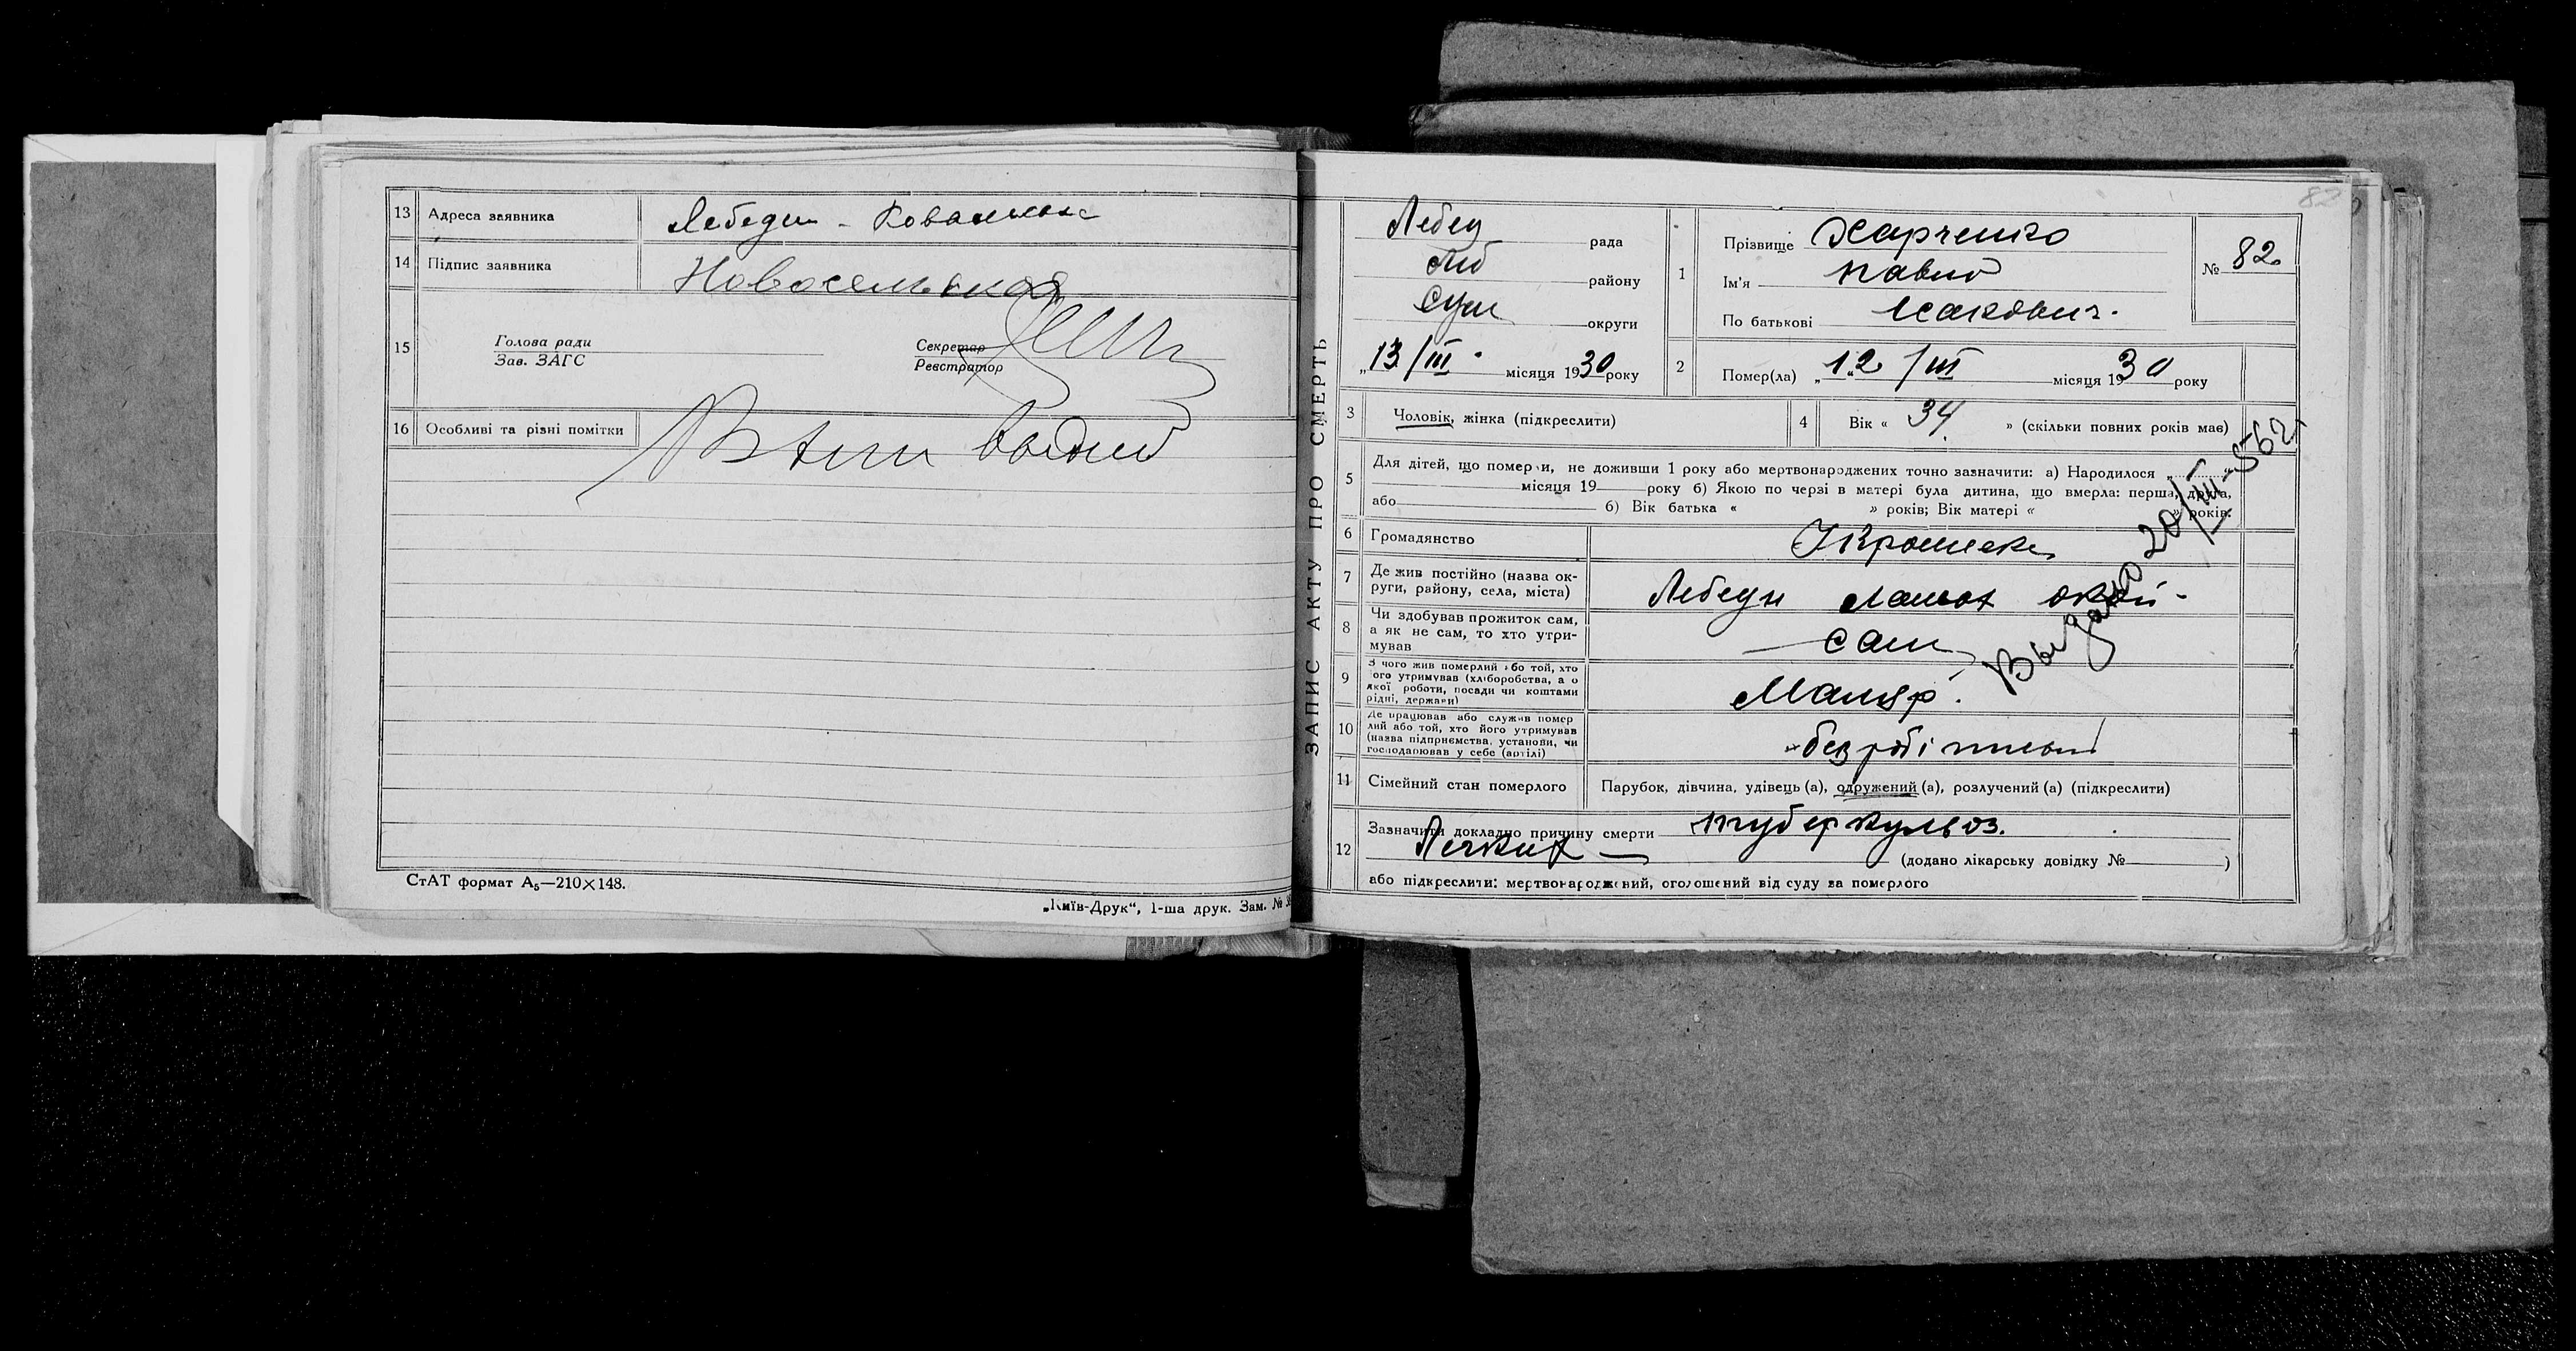 13 Адреса заявника Лебедин -
14 Підпис заявника Новосельская
15 Голова ради
Зав. ЗАГС
Секретар
Реєстратор
16 Особливі та різні помітки
СтАТ формат А₅—210×148.
„Київ-Друк“, 1-ша друк. Зам. №
82
ЗАПИС АКТУ ПРО СМЕРТЬ
Лебед рада
району
Сум округи
„13/III місяця 1930 року
1 Прізвище Харченко
Ім'я Павло
По батькові Исакович.
№ 82
2 Помер(ла) „12/III місяця 1930 року
3 Чоловік, жінка (підкреслити)
4 Вік « 34 » (скільки повних років має)
5 Для дітей, що померли, не доживши 1 року або мертвонароджених точно зазначити: а) Народилося „
місяця 19 року б) Якою по черзі в матері була дитина, що вмерла: перша, друга,
або б) Вік батька « » років; Вік матері « » років.
6 Громадянство
7 Де жив постійно (назва ок-
руги, району, села, міста) Лебедин
8 Чи здобував прожиток сам,
а як не сам, то хто утри-
мував сам
9 З чого жив померлий або той, хто
його утримував (хліборобства, а о
якої роботи, посади чи коштами
рідні, держави) Маляр.
10 Де працював або служив помер
лий або той, хто його утримував
(назва підприємства, установи, чи
господарював у себе (артілі)
11 Сімейний стан померлого Парубок, дівчина, удівець (а), одружений (а), розлучений (а) (підкреслити)
12 Зазначити докладно причину смерти туберкульоз.
Легких — (додано лікарську довідку № )
або підкреслити: мертвонароджений, оголошений від суду за померлого
Выдано 20/III-